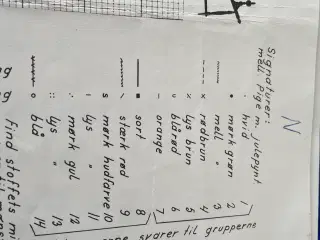 N
Signaturer:
mell. Pige m. julepynt
· hvid 1
• mørk grøn 2
| mell " 3
× rødbrun 4
v lys brun 5
< blårød 6
– orange 7
■ sort 8
\ stærk rød 9
s mørk hudfarve 10
ı lys " 11
∴ mørk gul 12
:: lys " 13
o blå 14
svarer til grupperne
find stoffets mi